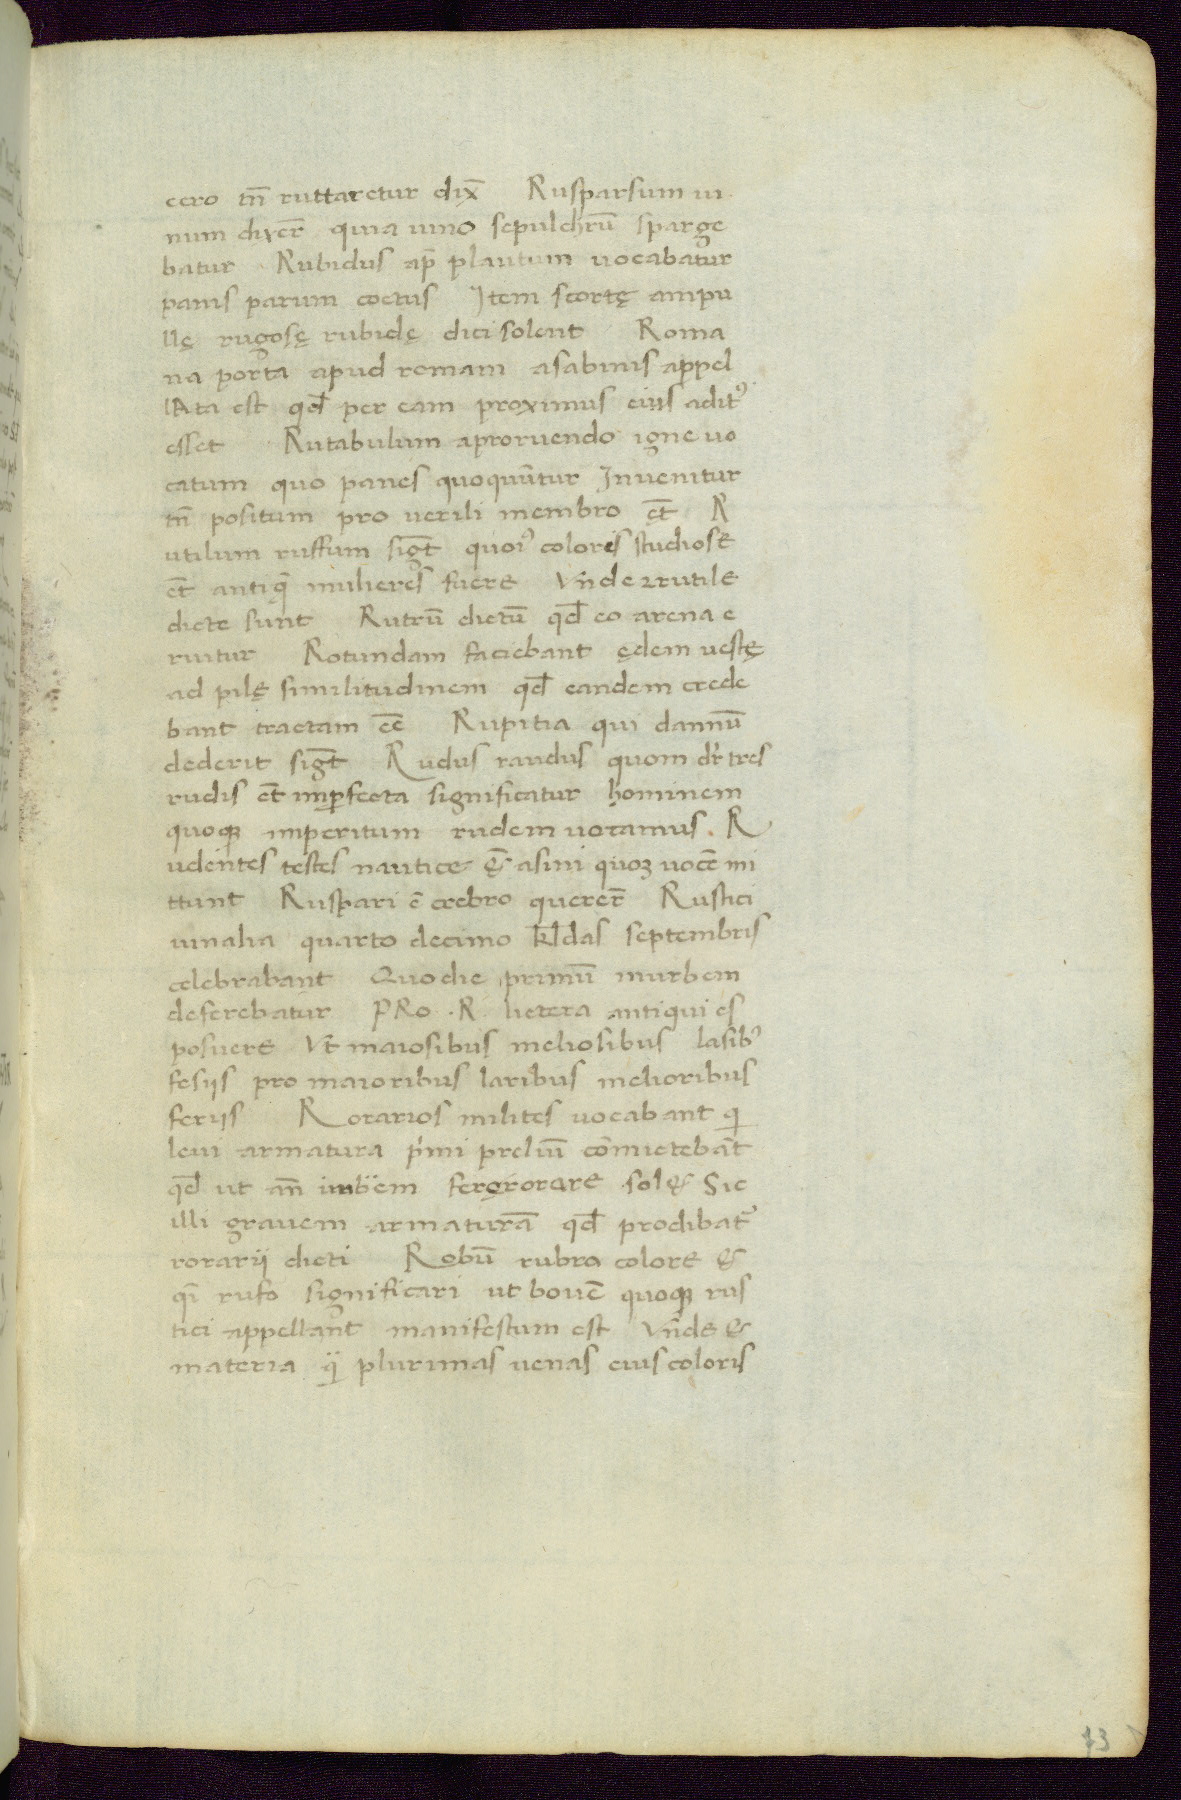 cero tñ ruttaretur dix̄ Rusparsum ui
num dixer̄ quia uino sepulchrū sparge
batur Rubidus ap̄ plautum vocabatur
panis parum coctus Item scortę ampu
llę rugosę rubidę dici solent Roma
na porta apud romam asabinis appel
lAta est qđ per eam proximus eius adit⁹
esset Rutabulum aproruendo igne vo
catum quo panes quoquūtur Invenitur
tñ positum pro verili membro et̄ R
utilum ruffum sigt̄ quoi⁹ colores studiose
et̄ antiq̄ mulieres fuere Vn̄de rutile
dicte sunt Rutrū dictū qđ eo arena e
ruitur Rotundam faciebant ędem vestę
ad pilę similitudinem qđ eandem crede
bant tractam ēe Rupitia qui damnū
dederit sigt̄ Rudus raudus quom dr̄ tres
rudis et̄ imperfecta significatur hominem
quoque imperitum rudem votamus. R
udentes testes nautice & asini quoꝫ vocē mi
ttunt Ruspari ē crebro querer̄ Rustici
uinalia quarto decimo kl̄das septembris
celebrabant Quo die primū inurbem
deferebatur PRo .R. lictera antiqui es
posuere Vt maiosibus meliosibus lasib⁹
fesijs pro maioribus laribus melioribus
ferijs Rorarios milites vocabant qi
levi armatura pⁱmi preliuī cōmictebāt
qđ ut an̄ imbrem ferę rorare sol& Sic
illi gravem armaturā qđ prodibāt
rorarij dicti Robū rubro colore &
qi rufo significari ut bovē quoque rus
tici appellant manifestum est Vn̄de &
materia q̄ plurimas venas eius coloris
73